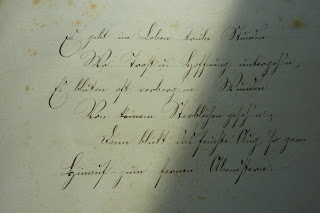 Es gibt im Leben trübe Stunden
Wo Trost u. Hoffnung untergeh'n,
Es bluten oft verborg'ne Wunden
Von keinem Sterblichen geseh'n;
Dann blickt das feuchte Aug' so gern
Hinauf zum fernen Abendstern.